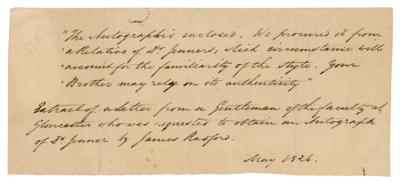 "The Autograph is enclosed. We procured it from
"a Relative of Dr Jenners, which circumstance will
"account for the familiarity of the style. Your
"Brother may rely on its authenticity"
Extract of a Letter from a Gentleman of the faculty at
Gloucester who was requested to obtain an Autograph
of Dr Jenner by James Rasford.
May 1826.